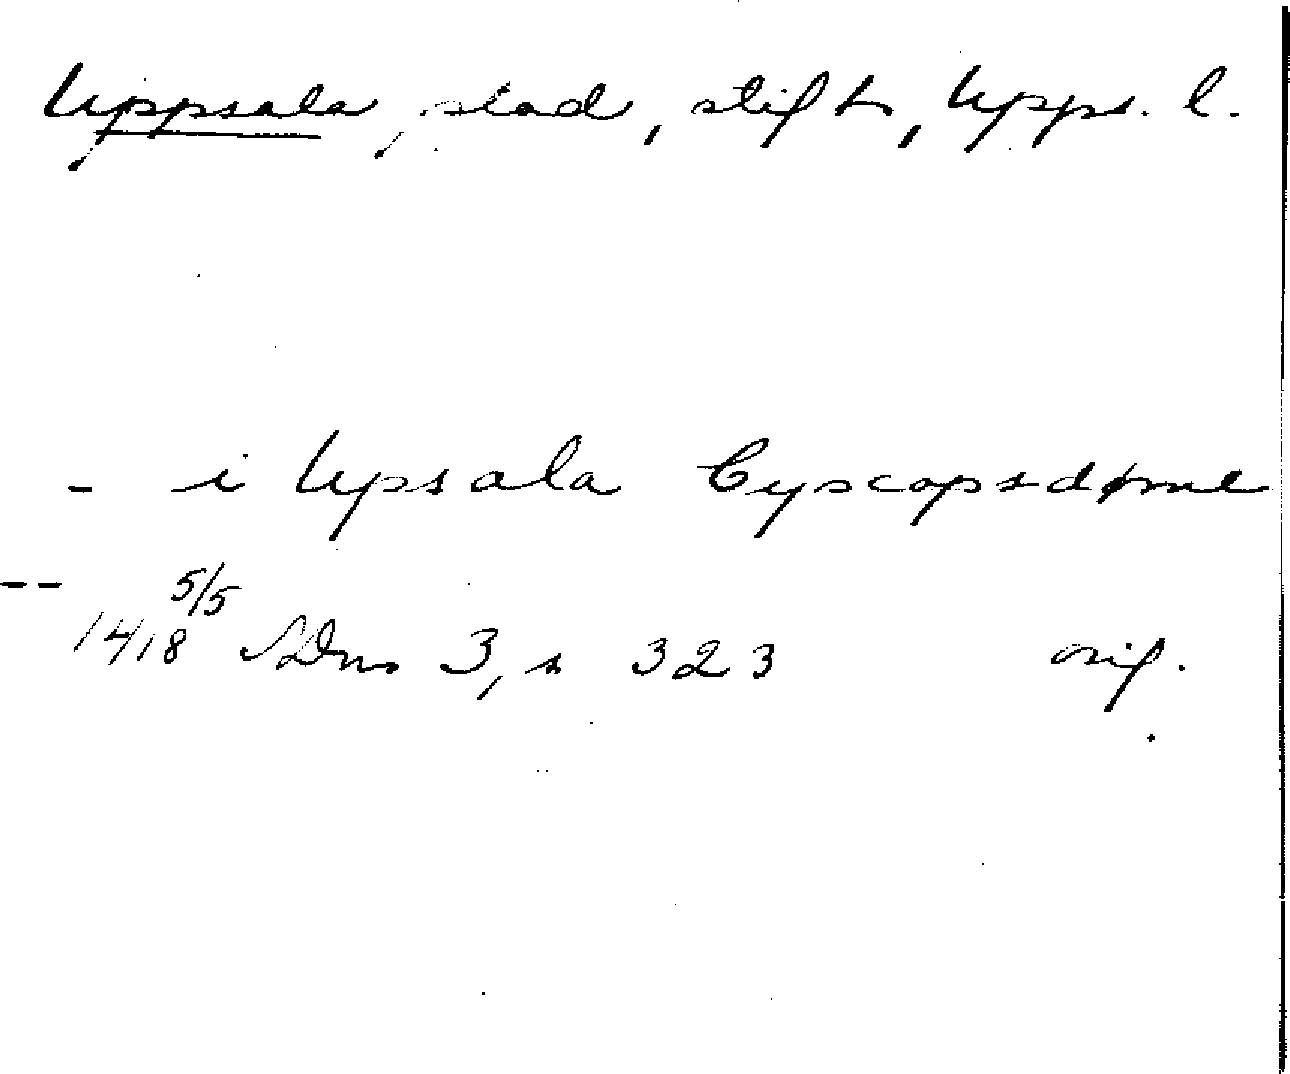 Uppsala, stad, stift, Upps. l.
- i Upsala Byscopsdøme
-- 5/5
1418 SDns 3, s 323 orig.